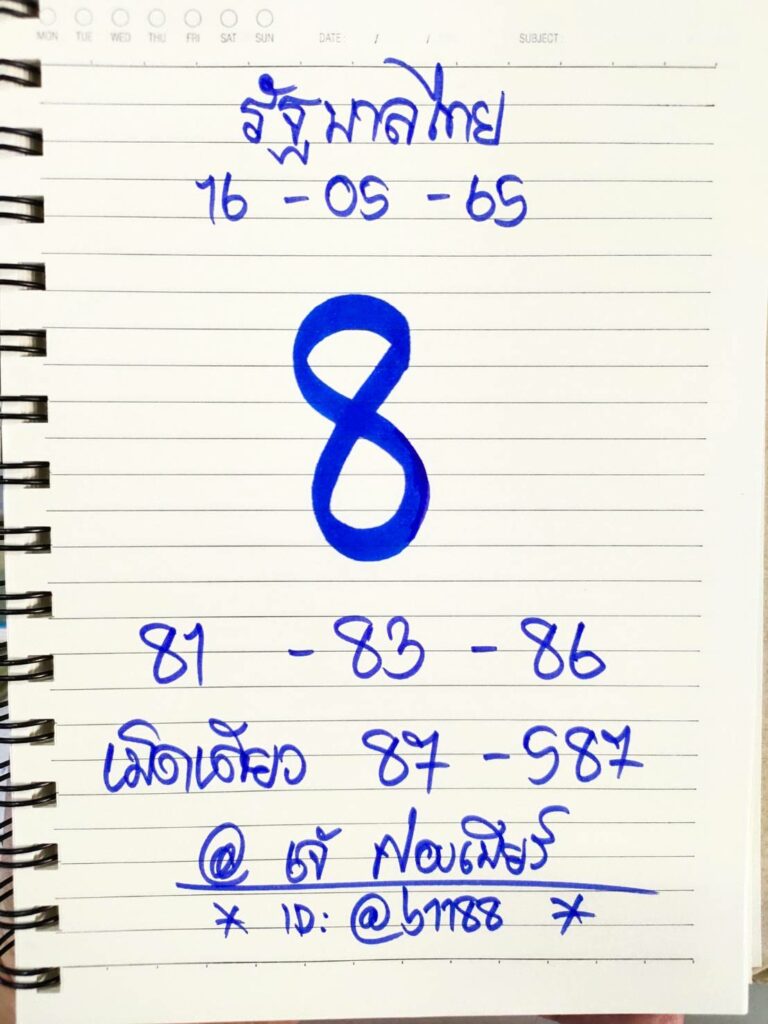 MON TUE WED THU FRI SAT SUN DATE: / / SUBJECT:
รัฐบาลไทย
16 - 05 - 65
8
81 - 83 - 86
เม็ดเดียว 87 - 587
@ เจ้
* ID: @b1188 *